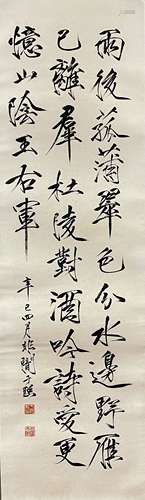 雨後菰蒲翠色分水邊野雁
已離群杜陵對酒吟詩愛更
憶山陰王右軍
辛巳四月